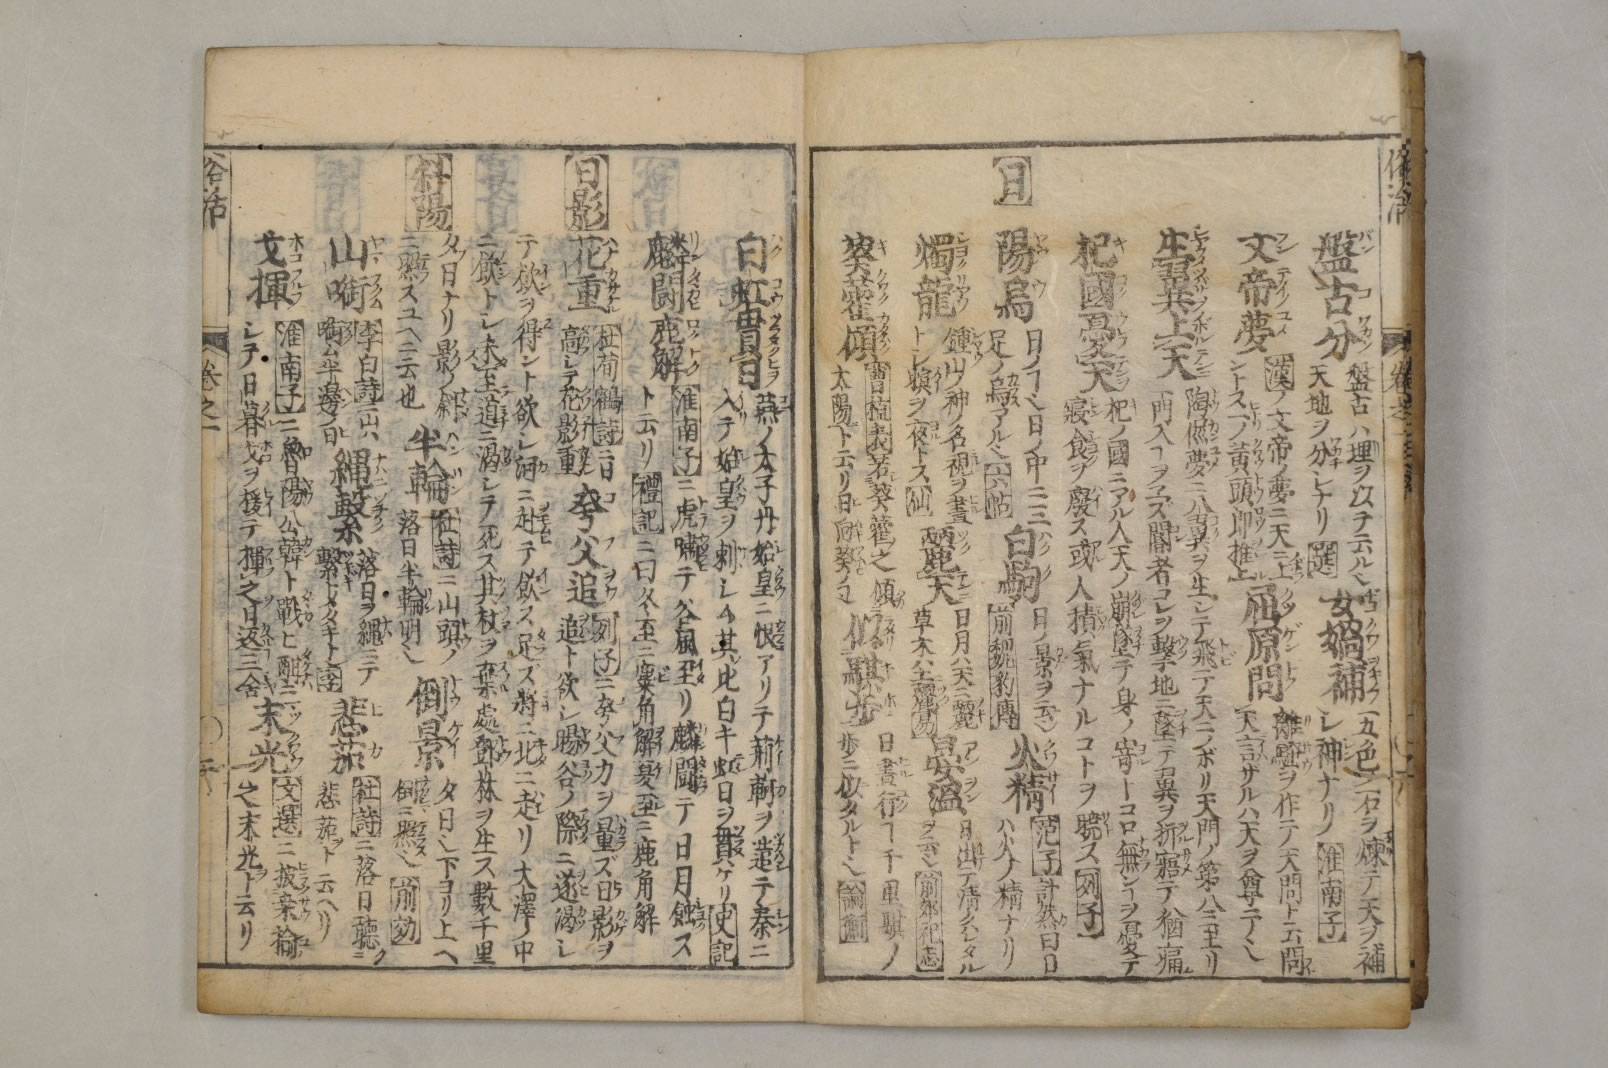 盤古分 盤古ハ理ヲ以テ云ルヽ 女媧補 五色ノ石ヲ煉テ天ヲ補
天地ヲ分シナリ 選 シ神ナリ 淮南子
文帝夢 漢ノ文帝ノ夢ニ天ニ上 屈原問 離騒ヲ作テ天問ト云問
ントス一ノ黄頭郎推上 天ニ言ザルハ天ヲ尊テヽ
生翼上天 陶侃夢ニ八翼ヲ生シテ飛テ天ニノボリ天門ノ第八ニ至リ
一門入ヿヲ不得閽者コレヲ撃地ニ墜テ翼ヲ折寤テ猶痛
杞國憂天 杞ノ國ニアル人天ノ崩墜テ身ノ寄トコロ無ンヿヲ憂テ
寝食ヲ廢ス或人積氣ナルコトヲ暁ス 列子
日
陽烏 日ノヿヽ日ノ中ニ三 白駒 日ノ景ヲ云 火精 范子計然曰日
足ノ烏アルヽ 六帖 前魏豹傳 ハ火ノ精ナリ
燭龍 鍾山ノ神ノ名視ヲ晝 麗天 日月ハ天ニ麗 晏温 日出テ清クハレタル
トシ瞑ヲ夜トス 仙 草木ハ土ニ麗 易 ヲ云シ 前郊祀志
葵藿傾 曹植表若葵藿之傾 似騏歩 日晝行ヿ千里騏ノ
太陽ト云リ日ニ向葵ノヿ 歩ニ似タルトヽ 論衡
白虹貫日 燕ノ太子丹始皇ニ恨アリテ荊軻ヲ遣テ秦ニ
入テ始皇ヲ刺シム其比白キ虹日ヲ貫ケリ 史記
麟闘鹿解 淮南子ニ虎嘯テ谷風至リ麟闘テ日月蝕ス
ト云リ 禮記ニ曰冬至ニ麋角解夏至ニ鹿角解
日影
花重 杜荀鶴詩ニ日 夸父追 列子ニ夸父力ヲ量ズ日影ヲ
高シテ花影重 追ト欲シ暘谷ノ際ニ逐渇シ
テ飲ヲ得ント欲シ河ニ赴テ飲ス足ズ将ニ北ニ走リ大澤ノ中
ニ飲トシ未至道ニ渇シテ死ス其杖ヲ棄處鄧林ヲ生ス數千里
斜陽
夕日ナリ影ノ斜 半輪 杜詩ニ山頭ノ 倒景 夕日シ下ヨリ上ヘ
ニ照スユヘニ云也 落日半輪明シ 倒ニ照シ 前劾
山啣 李白詩ニ山ハ 縄繋 落日ヲ縄ニテ 悲茄 杜詩ニ落日聽ニ
啣ム半邊ノ日 繋トメタキト 李 悲茄ヲト云ヘリ
戈揮 淮南子ニ魯陽公韓ト戰ヒ酣ニ 末光 文選ニ披桒榆
シテ日暮戈ヲ援テ揮之日返三舎 之末光ヲト云リ
俗活
巻之一